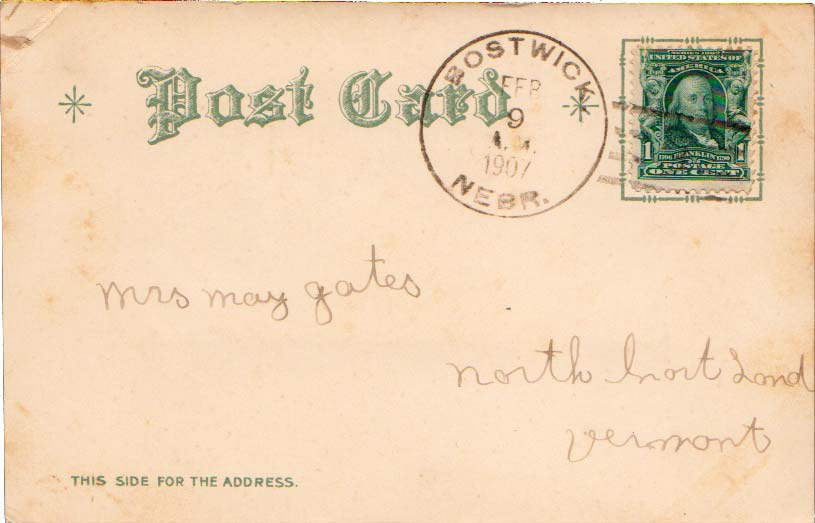 Post Card
BOSTWICK
FEB
9
A.M.
1907
NEBR.
SERIES 1902
UNITED STATES OF
AMERICA
1706 FRANKLIN 1790
1 POSTAGE 1
ONE CENT
Mrs may gates
North hart Land
vermont
THIS SIDE FOR THE ADDRESS.